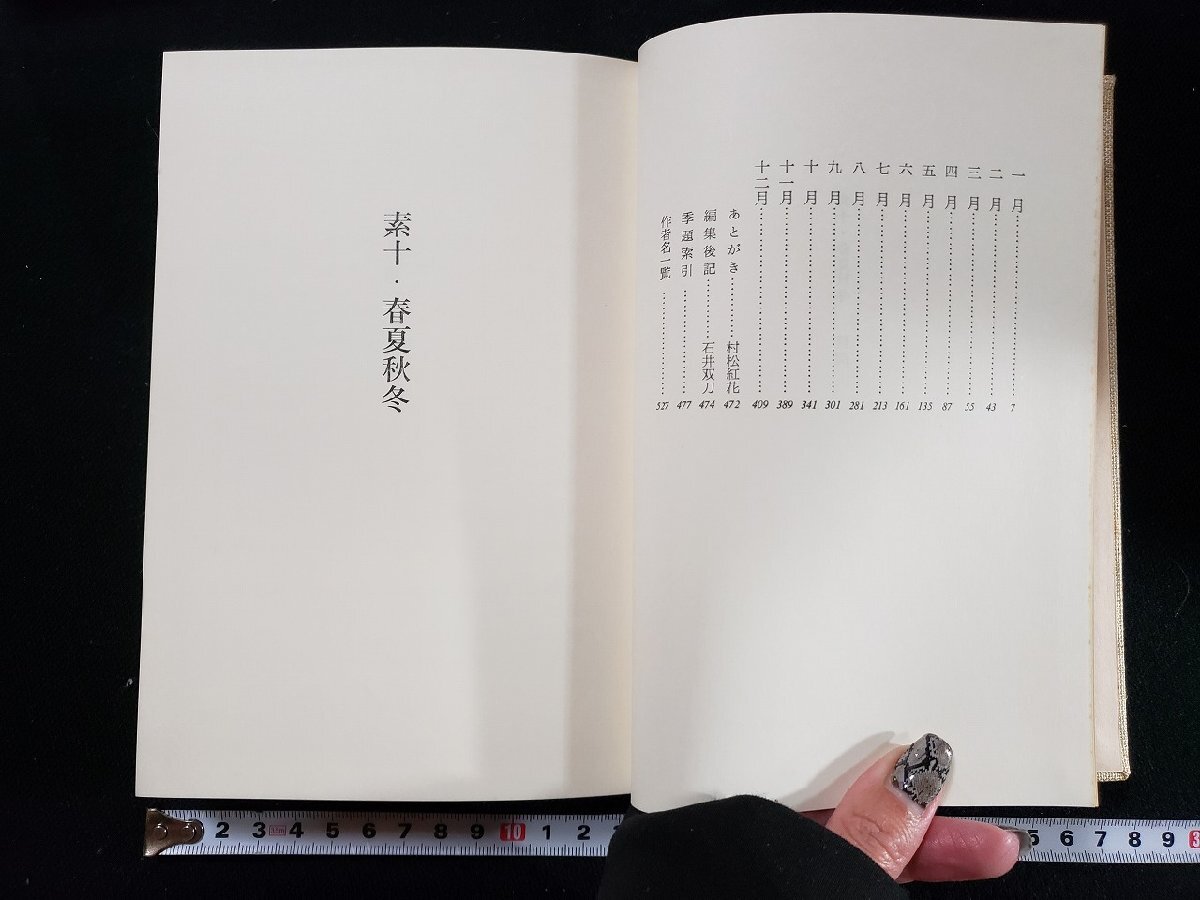 一月……………………7
二月……………………43
三月……………………65
四月……………………87
五月……………………135
六月……………………161
七月……………………213
八月……………………281
九月……………………301
十月……………………341
十一月……………………389
十二月……………………409
あとがき…………村松紅花 472
編集後記…………石井双刀 474
季題索引……………………477
作者名一覧……………………527
素十・春夏秋冬
2 3 4 5 6 7 8 9 10 1 2
5 6 7 8 9